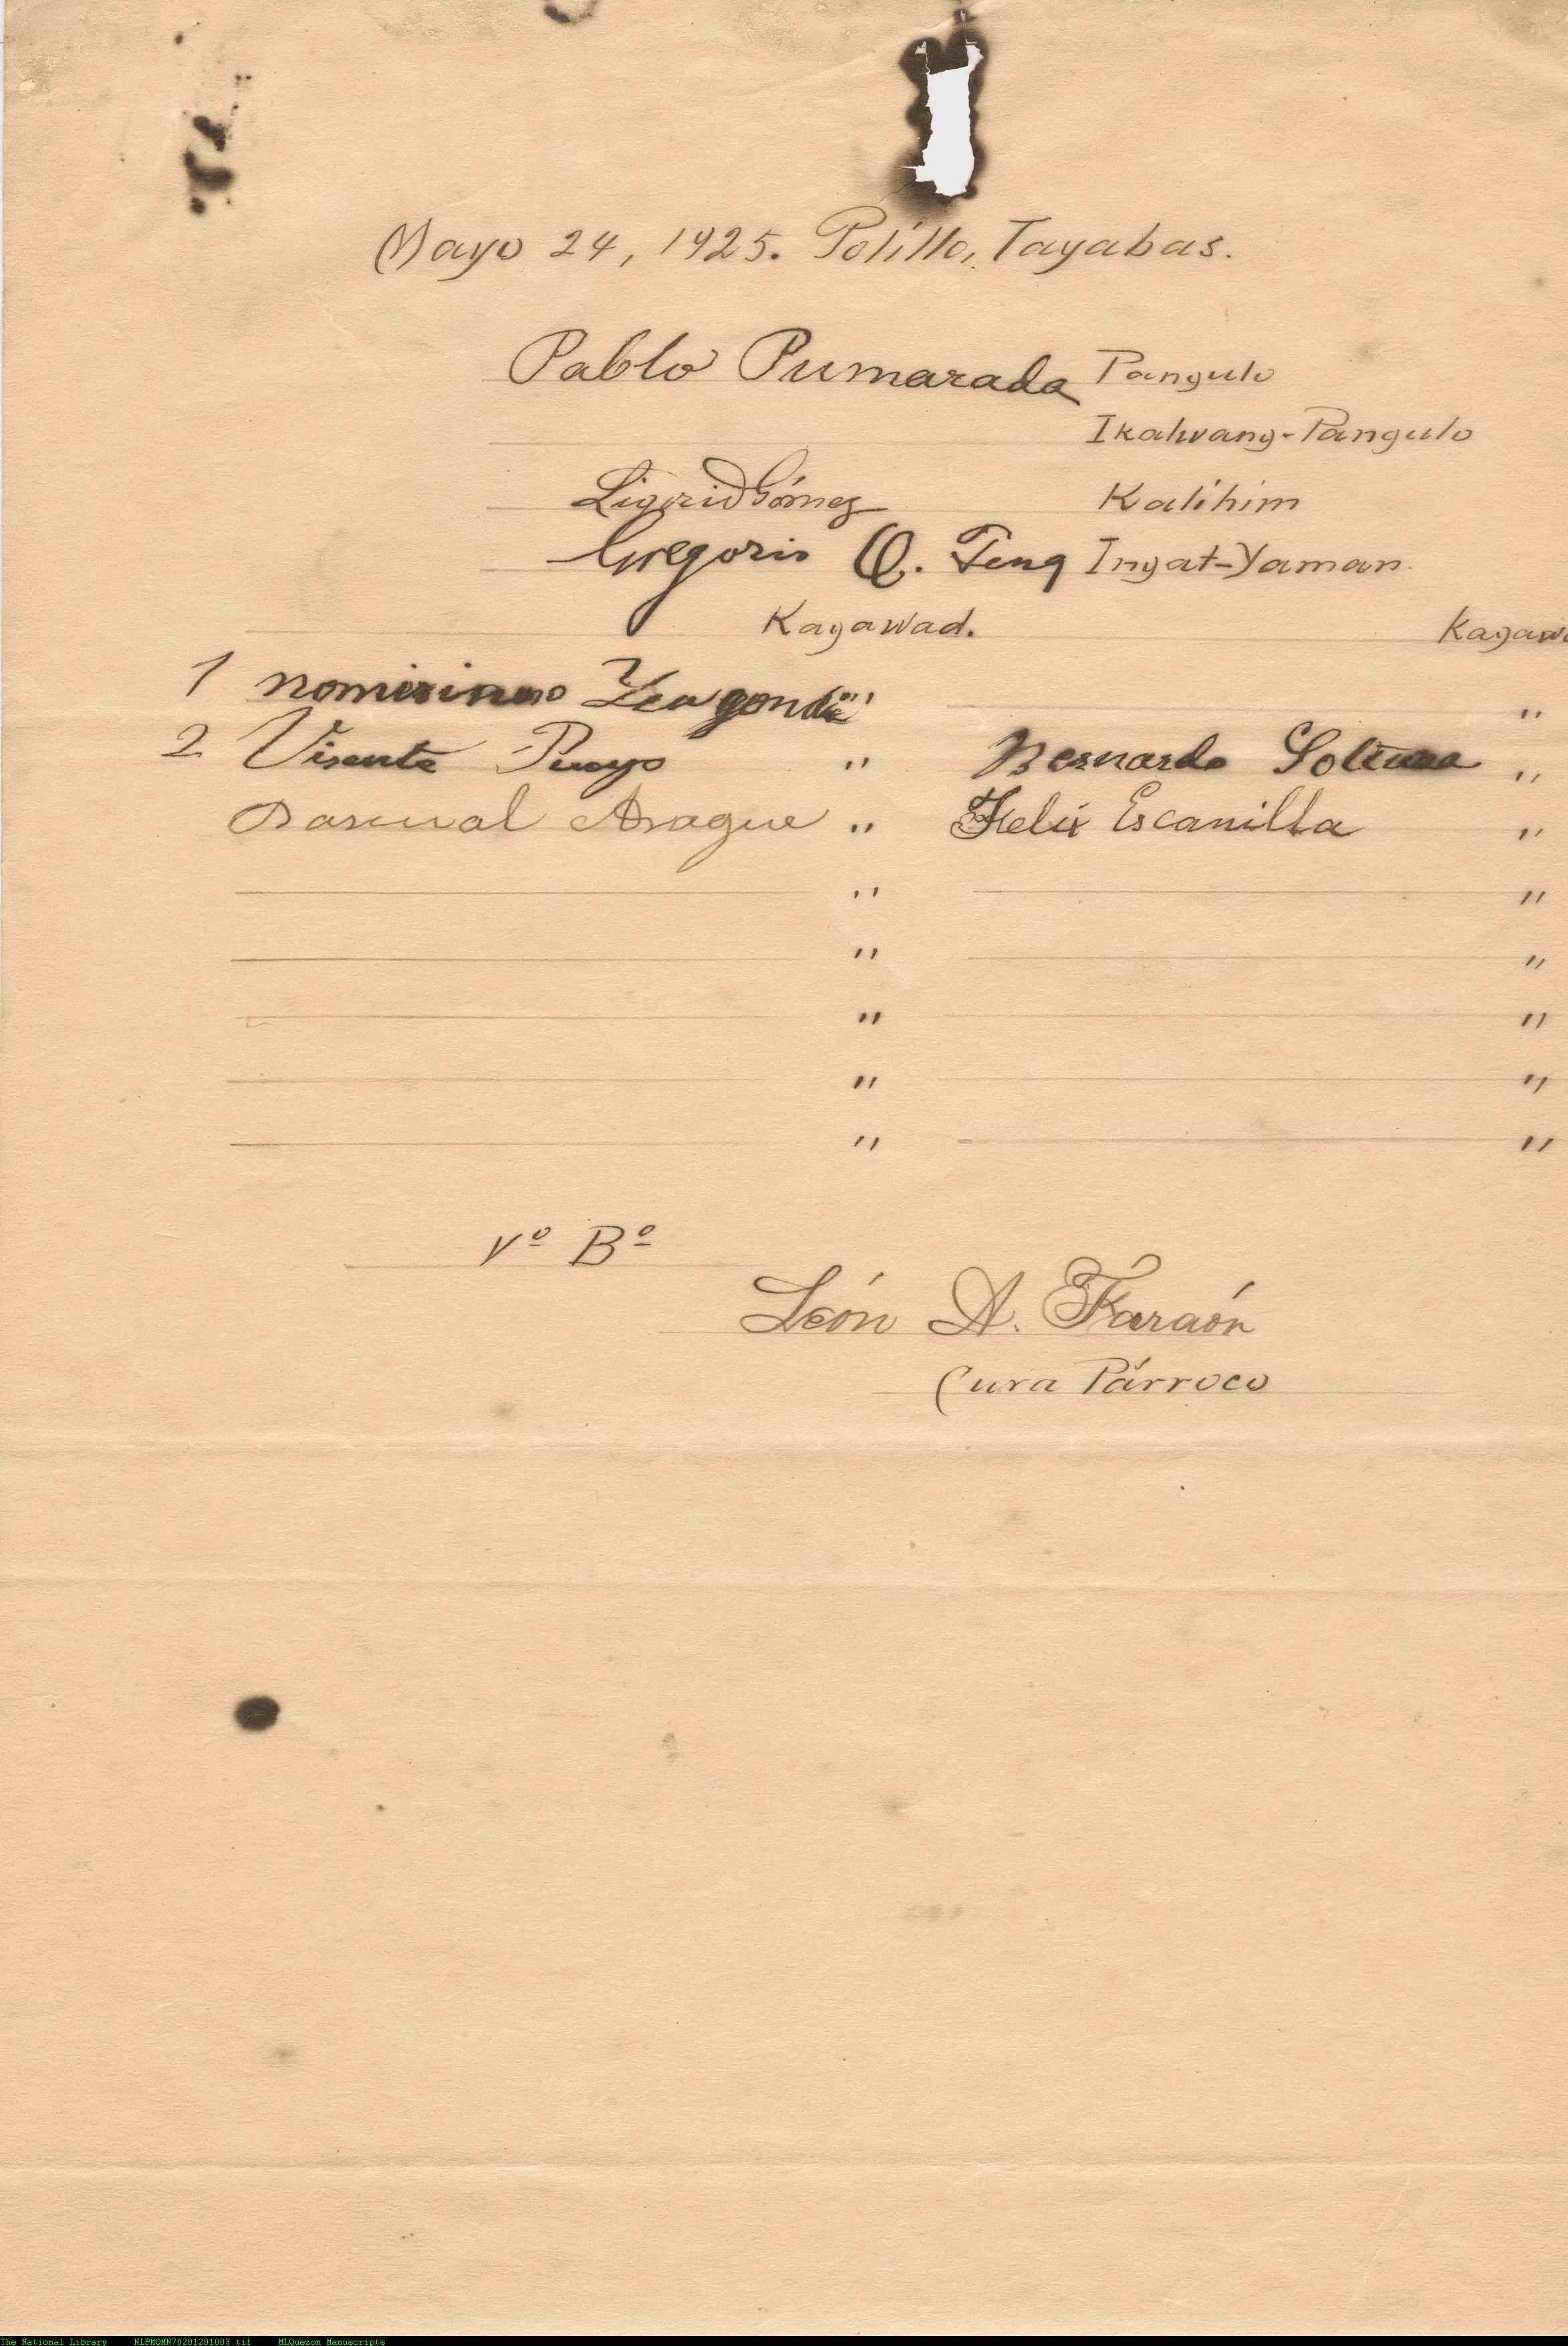 Mayo 24, 1925. Polillo, Tayabas.
Pablo Pumarada Pangulo
Ikalwang-Pangulo
Ligorio Gómez Kalihim
Gregorio Q. Teng Ingat-Yaman
Kagawad. Kagaw
1 "
2 Visente " Bernardo "
Pascual Araque " Felix Escanilla "
" "
" "
" "
" "
" "
Vº Bº
León A. Faraón
Cura Párroco
The National Library NLPMQMN70201201003.tif MLQuezon Manuscripts